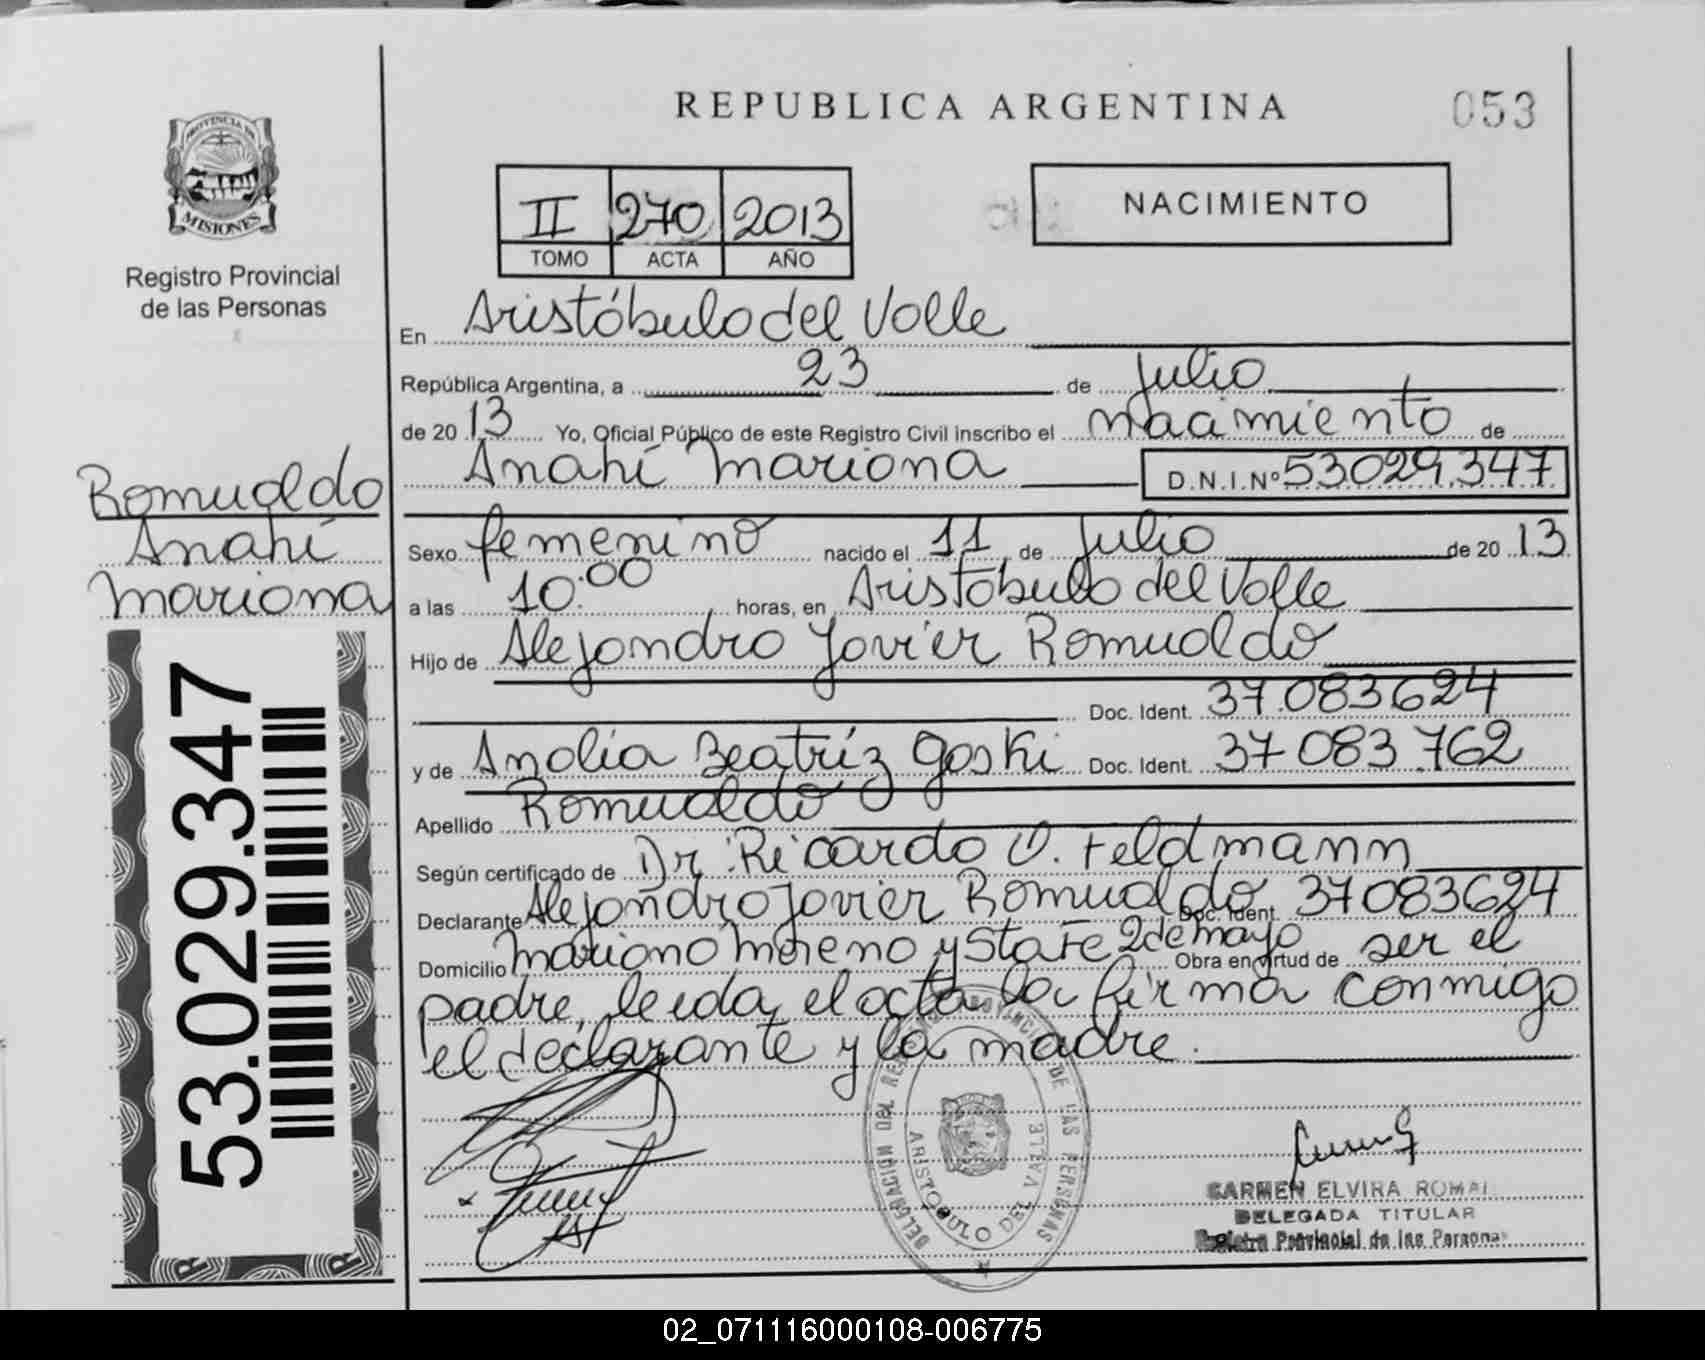 REPUBLICA ARGENTINA
053
PROVINCIA DE
MISIONES
Registro Provincial
de las Personas
II 270 2013
TOMO ACTA AÑO
NACIMIENTO
En Aristóbulo del Valle
República Argentina, a 23 de Julio
de 20 13 Yo, Oficial Público de este Registro Civil inscribo el nacimiento de
Anahí Mariana D.N.I.Nº 53029.347
Romualdo
Anahí
Mariana
Sexo femenino nacido el 11 de Julio de 20 13
a las 10:00 horas, en Aristóbulo del Valle
Hijo de Alejandro Javier Romualdo
Doc. Ident. 37.083624
y de Analía Beatríz Goski Doc. Ident. 37 083 762
Apellido Romualdo
Según certificado de Dr. Ricardo O. Feldmann
Declarante Alejandro Javier Romualdo Doc. Ident. 37083624
Domicilio Mariano Moreno y Sta Fe 2 de Mayo Obra en virtud de ser el
padre, leida el acta la firma conmigo
el declarante y la madre.
53.029.347
DELEGACION DEL REGISTRO PROVINCIAL DE LAS PERSONAS
ARISTOBULO DEL VALLE
CARMEN ELVIRA
DELEGADA TITULAR
Registro Provincial de las Personas
02_071116000108-006775